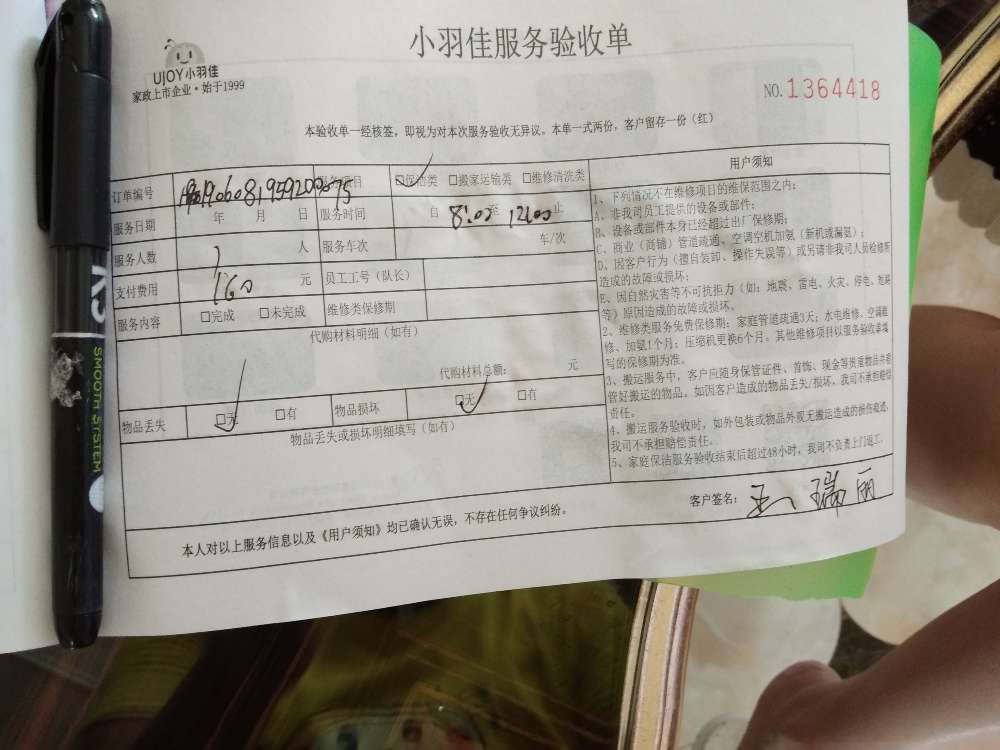 小羽佳服务验收单
UJOY小羽佳
家政上市企业·始于1999
NO.1364418
本验收单一经核签，即视为对本次服务验收无异议。本单一式两份，客户留存一份（红）
订单编号 服务项目 □保洁类 □搬家运输类 □维修清洗类
服务日期 年 月 日 服务时间 自 8:00 至 12:00 止
服务人数 1 人 服务车次 车/次
支付费用 160 元 员工工号（队长）
服务内容 □完成 □未完成 维修类保修期
代购材料明细（如有）
代购材料总额： 元
物品丢失 □无 □有 物品损坏 □无 □有
物品丢失或损坏明细填写（如有）
用户须知
1、下列情况不在维修项目的维保范围之内：
A、非我司员工提供的设备或部件；
B、设备或部件本身已经超过出厂保修期；
C、商业（商铺）管道疏通、空调空机加氨（新机或漏氨）；
D、因客户行为（擅自装卸、操作失误等）或另请非我司人员检修所
造成的故障或损坏；
E、因自然灾害等不可抗拒力（如：地震、雷电、火灾、停电、短路
等）原因造成的故障或损坏。
2、维修类服务免费保修期：家庭管道疏通3天；水电维修、空调维
修、加氨1个月；压缩机更换6个月。其他维修项目以服务验收单填
写的保修期为准。
3、搬运服务中，客户应随身保管证件、首饰、现金等贵重物品并看
管好搬运的物品。如因客户造成的物品丢失/损坏，我司不承担赔偿
责任。
4、搬运服务验收时，如外包装或物品外观无搬运造成的损伤痕迹，
我司不承担赔偿责任。
5、家庭保洁服务验收结束后超过48小时，我司不负责上门返工。
客户签名： 瑞丽
本人对以上服务信息以及《用户须知》均已确认无误，不存在任何争议纠纷。
SMOOTH SYSTEM